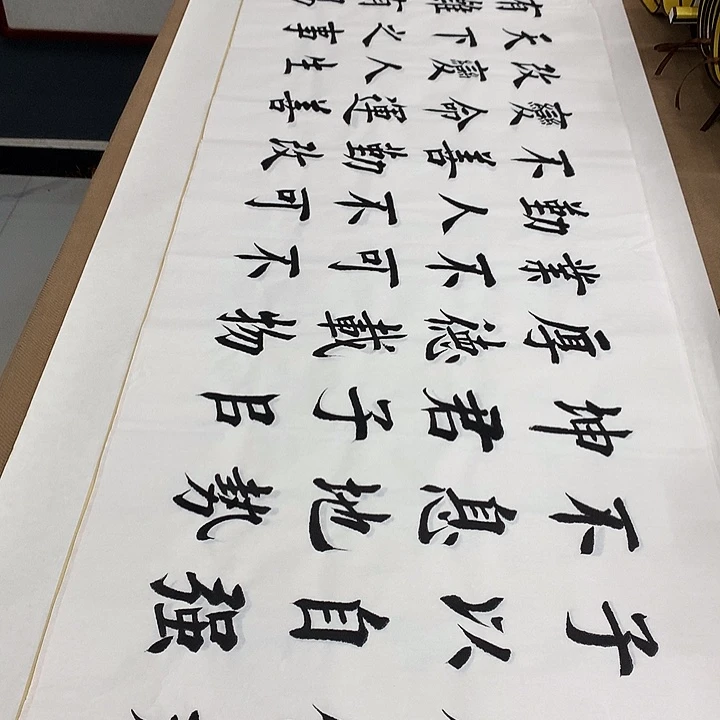 子以自强
不息地勢
坤君子日
厚德載物
業不可不
勤人不可
不善勤改
變命運善
改變人生
天下之事
有難